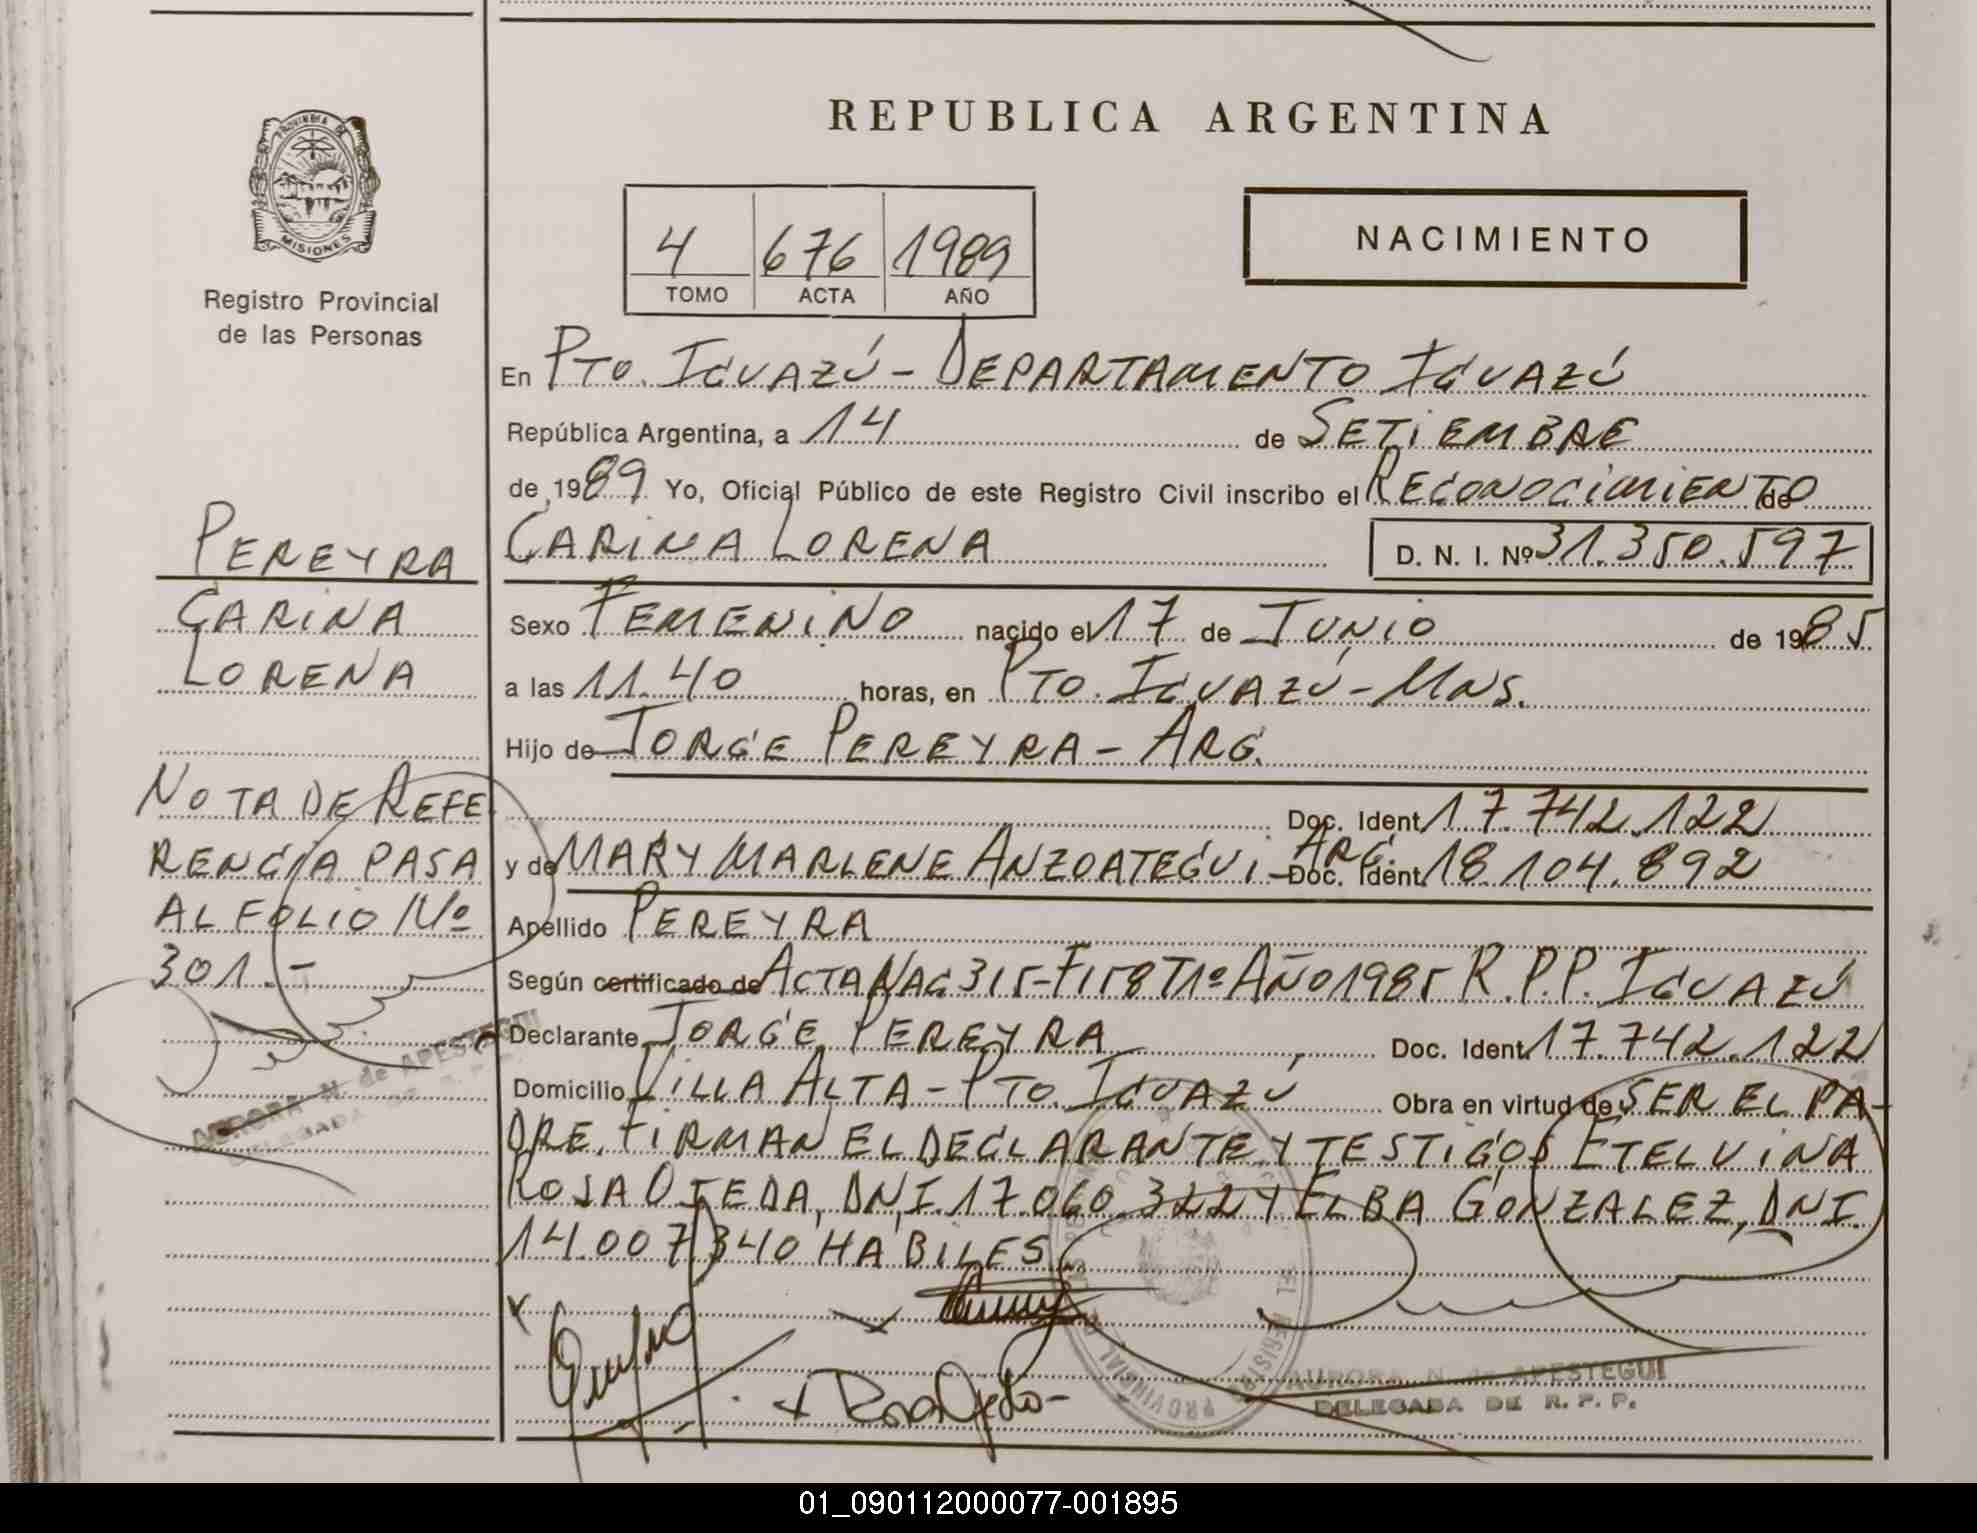 REPUBLICA ARGENTINA
PROVINCIA DE
MISIONES
Registro Provincial
de las Personas
4 676 1989
TOMO ACTA AÑO
NACIMIENTO
En PTO. IGUAZÚ - DEPARTAMENTO IGUAZÚ
República Argentina, a 14 de SETIEMBRE
de 1989 Yo, Oficial Público de este Registro Civil inscribo el RECONOCIMIENTO de
CARINA LORENA D. N. I. Nº 31.350.597
Sexo FEMENINO nacido el 17 de JUNIO de 1985
a las 11.40 horas, en PTO. IGUAZÚ - MNS.
Hijo de JORGE PEREYRA - ARG.
Doc. Ident. 17.742.122
y de MARY MARLENE ANZOATEGUI - ARG. Doc. Ident. 18.104.892
Apellido PEREYRA
Según certificado de ACTA NAC 315 - F158 T1º AÑO 1985 R.P.P. IGUAZÚ
Declarante JORGE PEREYRA Doc. Ident. 17.742.122
Domicilio VILLA ALTA - PTO. IGUAZÚ Obra en virtud de SER EL PA-
DRE. FIRMAN EL DECLARANTE Y TESTIGOS ETELVINA
ROSA OJEDA, DNI. 17.060.322 Y ELBA GONZALEZ, DNI.
14.007.340 HABILES
Rosa Ojeda -
AURORA N. de APESTEGUI
DELEGADA DE R. P. P.
PEREYRA
CARINA
LORENA
NOTA DE REFE
RENCIA PASA
AL FOLIO Nº
301. -
AURORA N. de APESTEGUI
DELEGADA DE R. P. P.
01_090112000077-001895